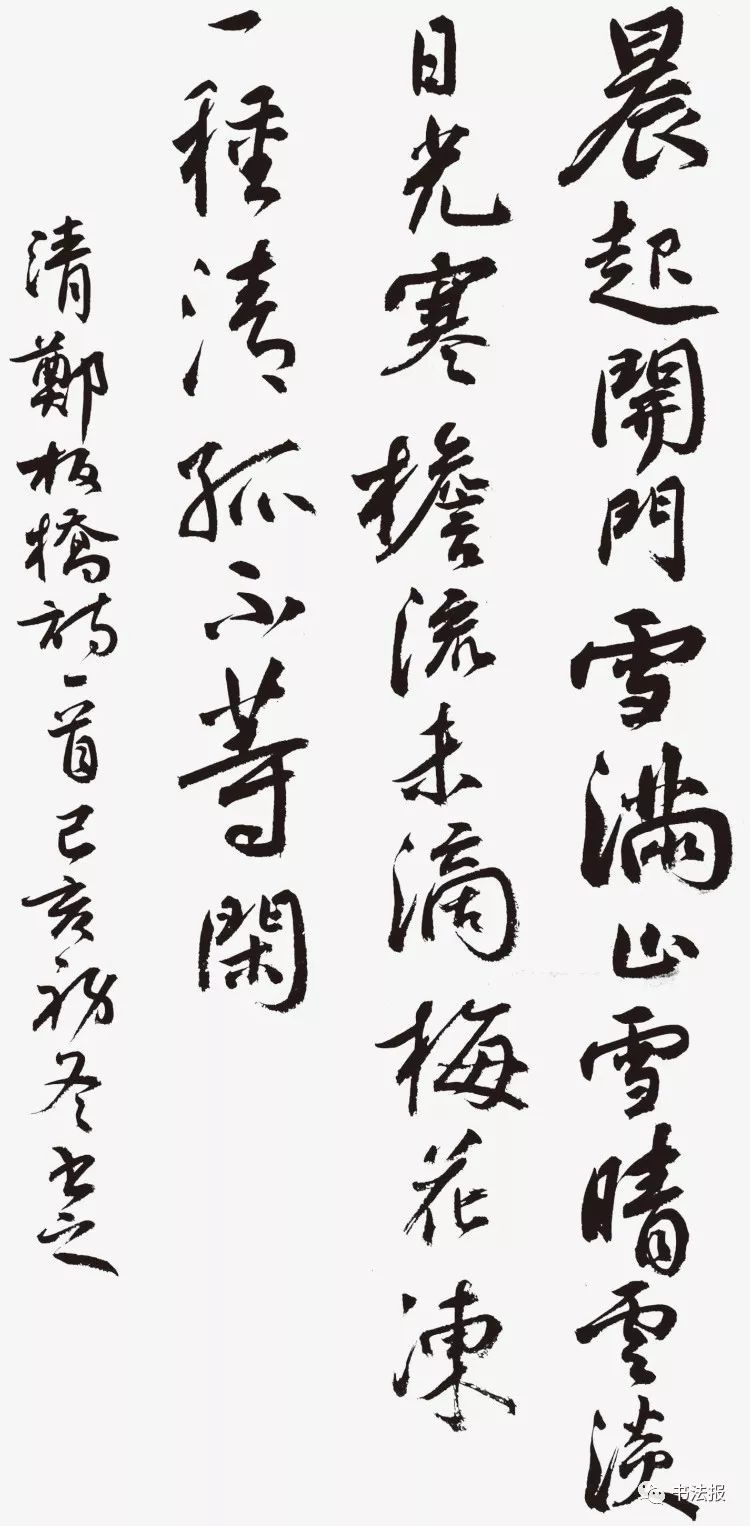 晨起開門雪滿山雪晴雲淡
日光寒檐流未滴梅花凍
一種清孤不等閑
清鄭板橋詩一首己亥初冬書之
书法报